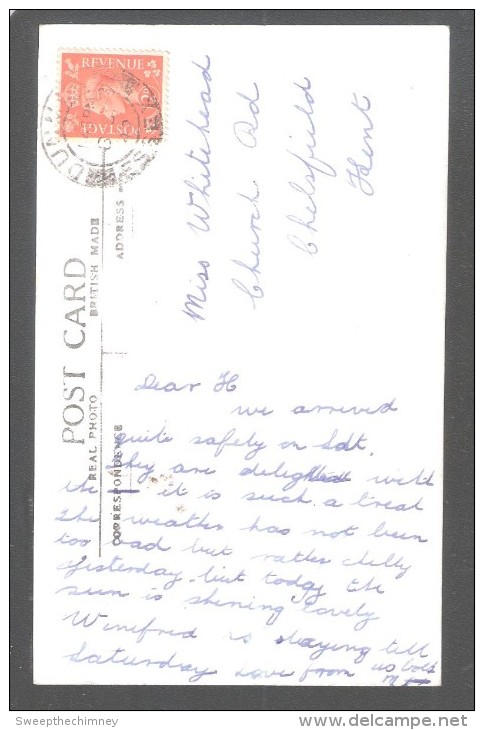 POST CARD
REAL PHOTO
BRITISH MADE
CORRESPONDENCE
ADDRESS
REVENUE
POSTAGE
Miss Whitehead
Church Rd
Chelsfield
Kent
Dear H
we arrived
quite safely on Sat.
they are delighted with
the it is such a treat
The weather has not been
too bad but rather chilly
yesterday but today the
sun is shining lovely
Winefred is staying till
Saturday Love from us both
Sweepthechimney
delcampe.net